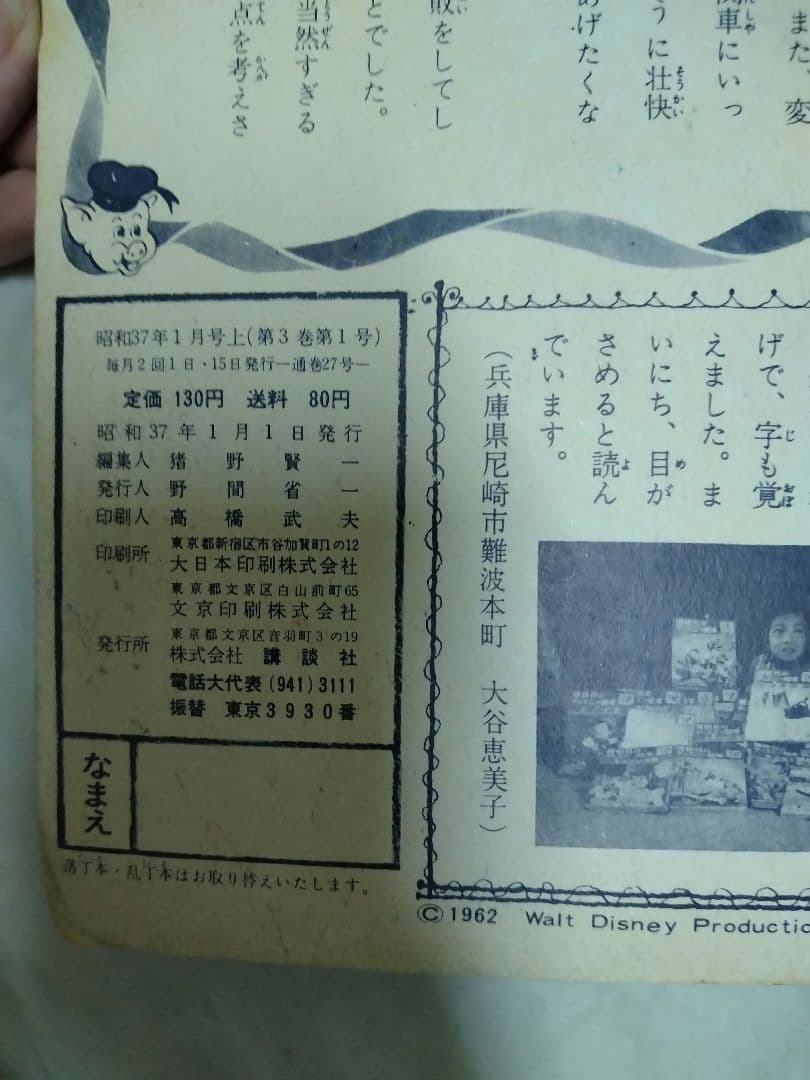 また、変
車にいっ
うに壮快
あげたくな
敗をしてし
とでした。
当然すぎる
点を考えさ
昭和37年1月号上(第3巻第1号)
毎月2回1日・15日発行—通巻27号—
定価 130円 送料 80円
昭和37年1月1日発行
編集人 猪野賢一
発行人 野間省一
印刷人 高橋武夫
印刷所 東京都新宿区市谷加賀町1の12
大日本印刷株式会社
東京都文京区白山前町65
文京印刷株式会社
発行所 東京都文京区音羽町3の19
株式会社 講談社
電話大代表(941)3111
振替 東京3930番
なまえ
落丁本・乱丁本はお取り替えいたします。
げで、字も覚
えました。ま
いにち、目が
さめると読ん
でいます。
(兵庫県尼崎市難波本町 大谷恵美子)
©1962 Walt Disney Productio